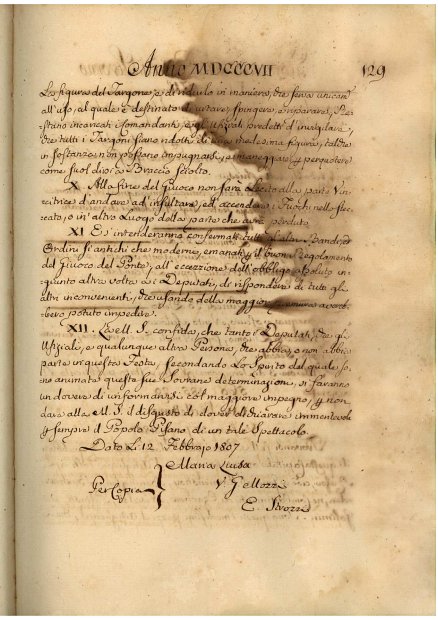 Anno MDCCCVII
129
La figura del Targone, e di ridurlo in maniera, che serva unicam.
all'uso, al quale è destinato di urtare, spingere, e riparare,
stano incaricati i Comandanti, e gl'Ufiziali predetti d'invigilare,
che tutti i Targoni siano ridotti di una medesima figura, talchè
in sostanza non possano impugnarsi, e maneggiarsi, e percuotere
come suol dirsi a Braccio sciolto.
X. Alla fine del Giuoco non sarà lecito alla parte Vin-
citrice d'andare ad insultare, ed accendere i Fuochi nello stec-
cato, o in altro Luogo della parte che avrà perduto.
XI. Ed intenderanno confermati tutti gl'altri Bandi, ed
Ordini sì antichi che moderni, emanati p. il buon Regolamento
del Giuoco del Ponte, all'eccezione dell'obbligo assoluto in-
giunto altra volta ai Deputati, di rispondere di tutti gli
altri inconvenienti, che usando della maggior premura avreb-
bero potuto impedire.
XII. La M. S. confida, che tanto i Deputati, che gli
Ufiziali, e qualunque altra Persona, che abbia, o non abbia
parte in questa Festa, secondando lo Spirito del quale so-
no animate queste sue Sovrane determinazioni, si faranno
un dovere di uniformarsi col maggiore impegno, p. non
dare alla M. S. il disgusto di dover dichiarare immeritevole
p. sempre il Popolo Pisano di un tale Spettacolo.
Dato Li 12. Febbrajo 1807
Maria Luisa
Per Copia V. Gellozzi
E. Strozzi